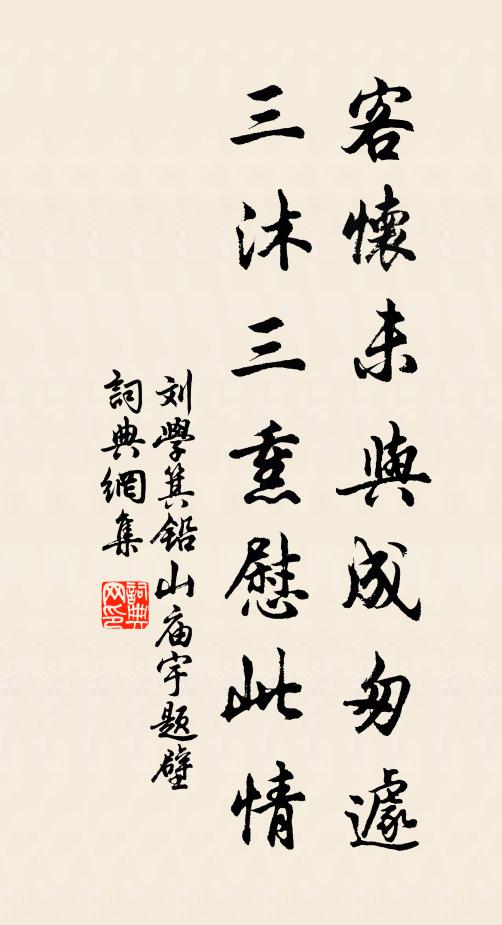 客懷未與成匆遽
三沐三熏慰此情
刘學箕铅山庙宇題壁
詞典網集
詞典网印